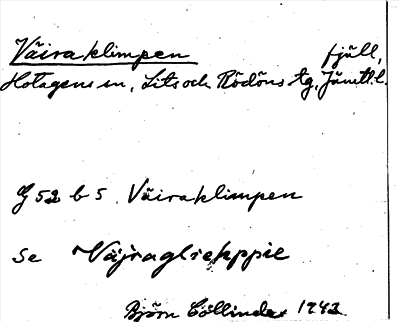 Väiraklimpen fjäll,
Hotagens sn, Lits och Rödöns tg, Jämtl.l.
G 52 b 5 Väiraklimpen
Se Väjragliehppie
Björn Collinder 1942